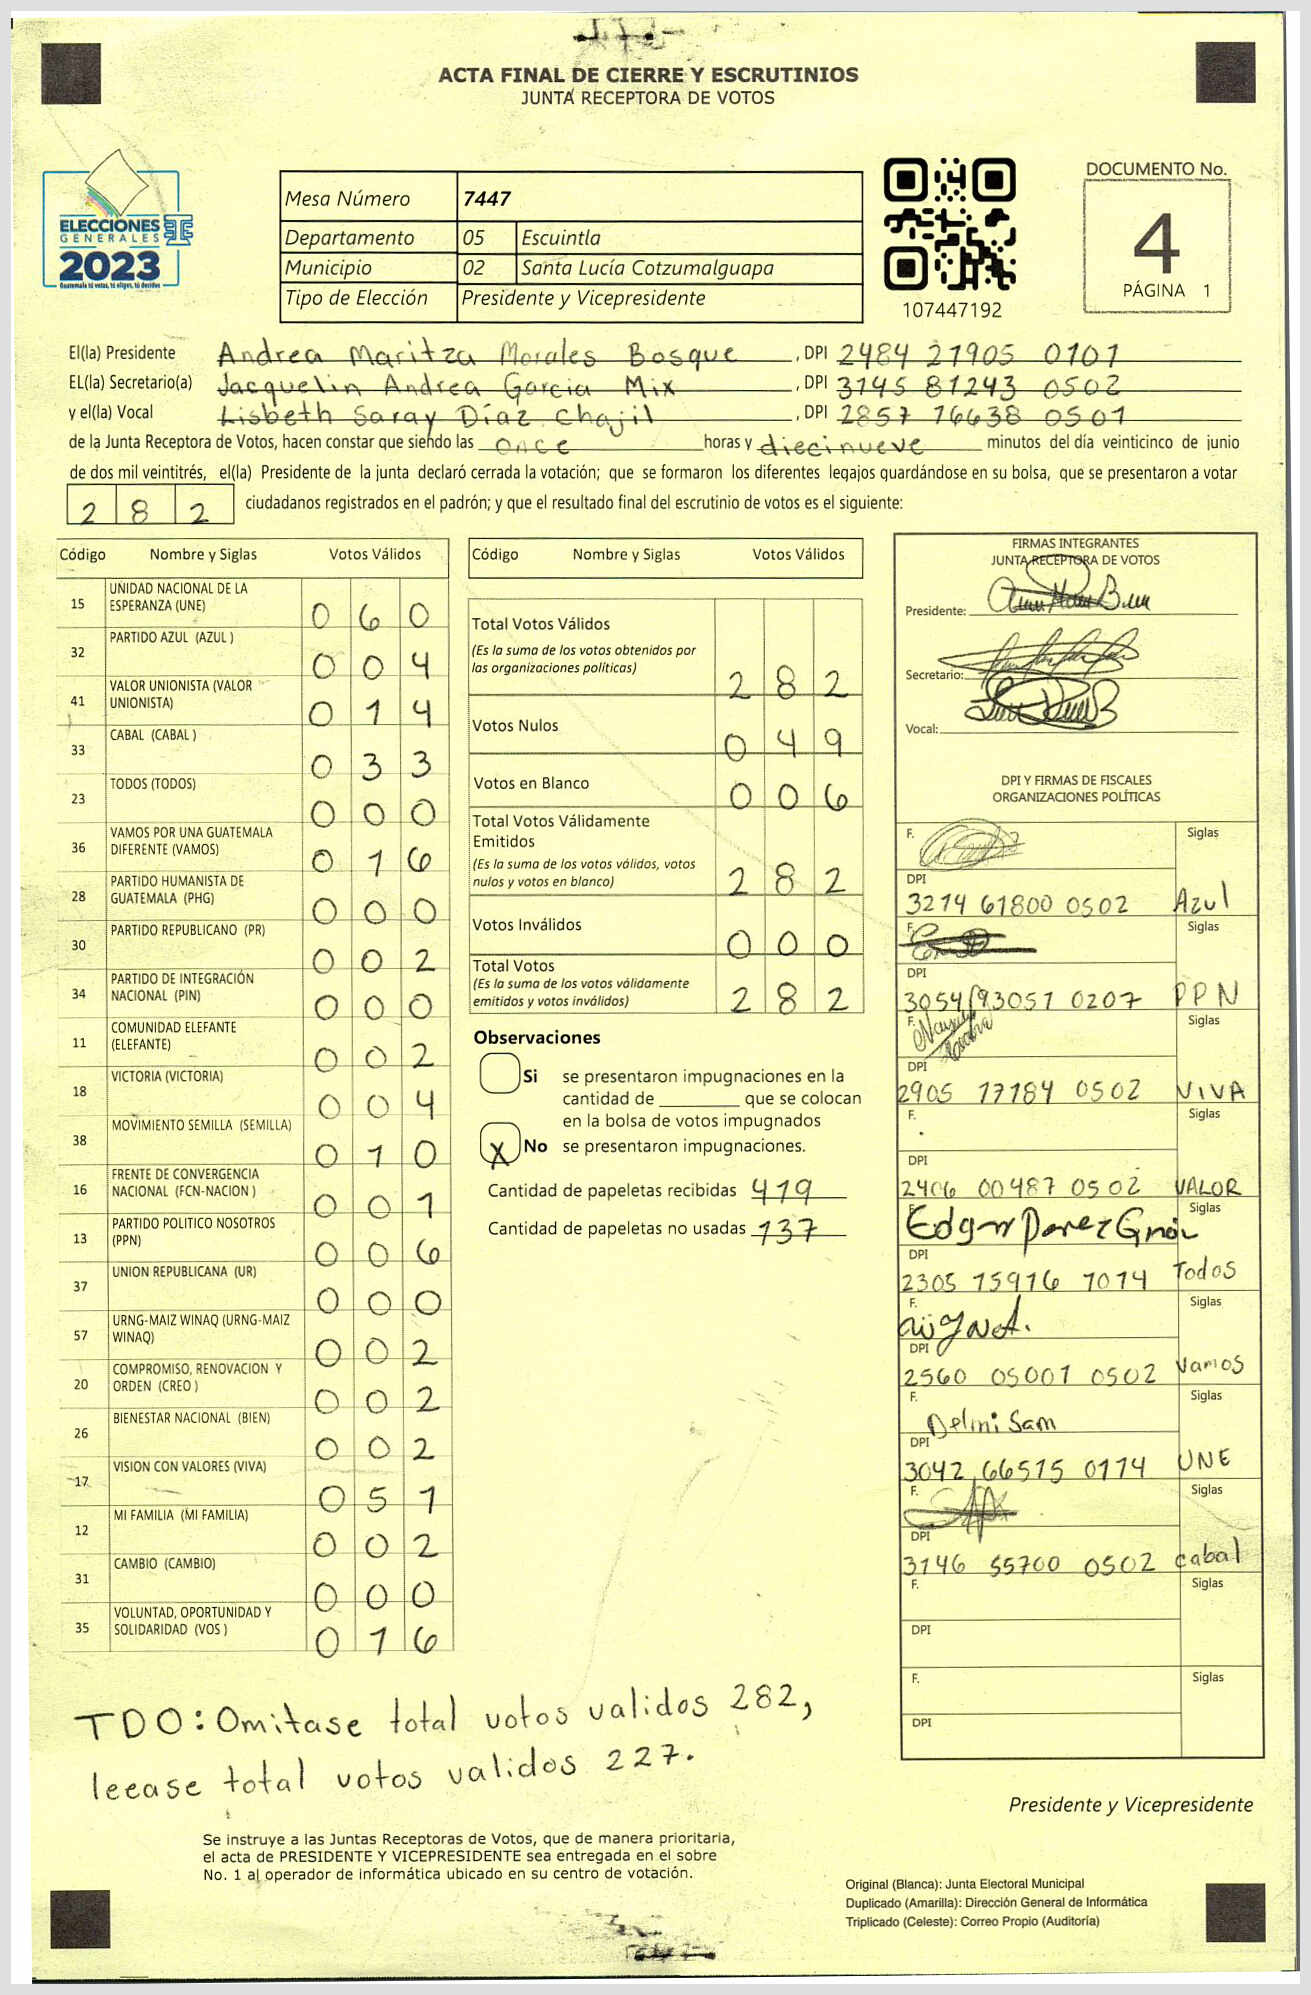 ACTA FINAL DE CIERRE Y ESCRUTINIOS
JUNTA RECEPTORA DE VOTOS
ELECCIONES
GENERALES
2023
Guatemala tú votas, tú eliges, tú decides
Mesa Número 7447
Departamento 05 Escuintla
Municipio 02 Santa Lucía Cotzumalguapa
Tipo de Elección Presidente y Vicepresidente
107447192
DOCUMENTO No.
4
PÁGINA 1
El(la) Presidente Andrea Maritza Morales Bosque , DPI 2484 21905 0101
EL(la) Secretario(a) Jacquelin Andrea Garcia Mix , DPI 3145 81243 0502
y el(la) Vocal Lisbeth Saray Díaz Chajil , DPI 2857 76638 0501
de la Junta Receptora de Votos, hacen constar que siendo las once horas y diecinueve minutos del día veinticinco de junio
de dos mil veintitrés, el(la) Presidente de la junta declaró cerrada la votación; que se formaron los diferentes legajos quardándose en su bolsa, que se presentaron a votar
282 ciudadanos registrados en el padrón; y que el resultado final del escrutinio de votos es el siguiente:
Código Nombre y Siglas Votos Válidos
15 UNIDAD NACIONAL DE LA
ESPERANZA (UNE) 060
32 PARTIDO AZUL (AZUL ) 004
41 VALOR UNIONISTA (VALOR
UNIONISTA) 014
33 CABAL (CABAL ) 033
23 TODOS (TODOS) 000
36 VAMOS POR UNA GUATEMALA
DIFERENTE (VAMOS) 016
28 PARTIDO HUMANISTA DE
GUATEMALA (PHG) 000
30 PARTIDO REPUBLICANO (PR) 002
34 PARTIDO DE INTEGRACIÓN
NACIONAL (PIN) 000
11 COMUNIDAD ELEFANTE
(ELEFANTE) 002
18 VICTORIA (VICTORIA) 004
38 MOVIMIENTO SEMILLA (SEMILLA) 010
16 FRENTE DE CONVERGENCIA
NACIONAL (FCN-NACION ) 001
13 PARTIDO POLITICO NOSOTROS
(PPN) 006
37 UNION REPUBLICANA (UR) 000
57 URNG-MAIZ WINAQ (URNG-MAIZ
WINAQ) 002
20 COMPROMISO, RENOVACION Y
ORDEN (CREO ) 002
26 BIENESTAR NACIONAL (BIEN) 002
17 VISION CON VALORES (VIVA) 051
12 MI FAMILIA (MI FAMILIA) 002
31 CAMBIO (CAMBIO) 000
35 VOLUNTAD, OPORTUNIDAD Y
SOLIDARIDAD (VOS ) 016
Código Nombre y Siglas Votos Válidos
Total Votos Válidos
(Es la suma de los votos obtenidos por
las organizaciones políticas) 282
Votos Nulos 049
Votos en Blanco 006
Total Votos Válidamente
Emitidos
(Es la suma de los votos válidos, votos
nulos y votos en blanco) 282
Votos Inválidos 000
Total Votos
(Es la suma de los votos válidamente
emitidos y votos inválidos) 282
Observaciones
Si se presentaron impugnaciones en la
cantidad de ________ que se colocan
en la bolsa de votos impugnados
X No se presentaron impugnaciones.
Cantidad de papeletas recibidas 419
Cantidad de papeletas no usadas 137
FIRMAS INTEGRANTES
JUNTA RECEPTORA DE VOTOS
Presidente:
Secretario:
Vocal:
DPI Y FIRMAS DE FISCALES
ORGANIZACIONES POLÍTICAS
F. Siglas
DPI
3214 61800 0502 Azul
F. Siglas
DPI
3054 93051 0207 PPN
F. Siglas
DPI
2905 17184 0502 VIVA
F. Siglas
DPI
2406 00487 0502 VALOR
Siglas
Edgar Perez
DPI
2305 15916 1014 Todos
F. Siglas
DPI
2560 05001 0502 Vamos
F. Siglas
Delmi Sam
DPI
3042 66515 0114 UNE
F. Siglas
DPI
3146 55700 0502 cabal
F. Siglas
DPI
F. Siglas
DPI
TDO: Omitase total votos validos 282,
leease total votos validos 227.
Presidente y Vicepresidente
Se instruye a las Juntas Receptoras de Votos, que de manera prioritaria,
el acta de PRESIDENTE Y VICEPRESIDENTE sea entregada en el sobre
No. 1 al operador de informática ubicado en su centro de votación.
Original (Blanca): Junta Electoral Municipal
Duplicado (Amarilla): Dirección General de Informática
Triplicado (Celeste): Correo Propio (Auditoría)